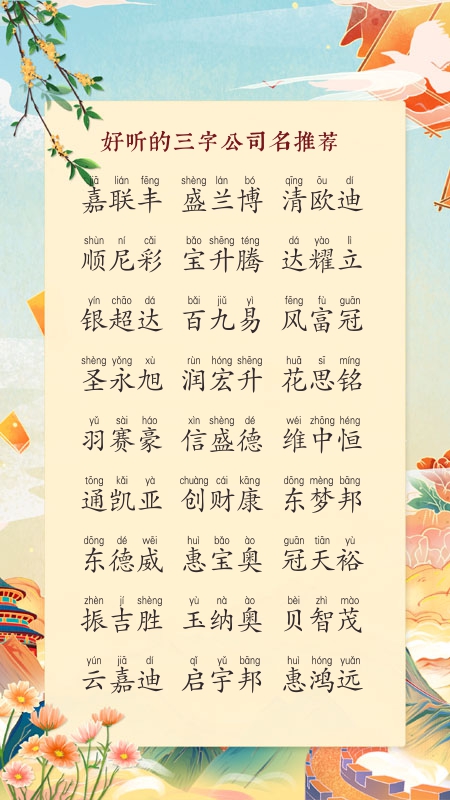 好听的三字公司名推荐
jiā lián fēng shèng lán bó qīng ōu dí
嘉联丰 盛兰博 清欧迪
shùn ní cǎi bǎo shēng téng dá yào lì
顺尼彩 宝升腾 达耀立
yín chāo dá bǎi jiǔ yì fēng fù guān
银超达 百九易 风富冠
shèng yǒng xù rùn hóng shēng huā sī míng
圣永旭 润宏升 花思铭
yǔ sài háo xìn shèng dé wéi zhōng héng
羽赛豪 信盛德 维中恒
tōng kǎi yà chuàng cái kāng dōng mèng bāng
通凯亚 创财康 东梦邦
dōng dé wēi huì bǎo ào guān tiān yù
东德威 惠宝奥 冠天裕
zhèn jí shèng yù nà ào bèi zhì mào
振吉胜 玉纳奥 贝智茂
yún jiā dí qǐ yǔ bāng huì hóng yuǎn
云嘉迪 启宇邦 惠鸿远